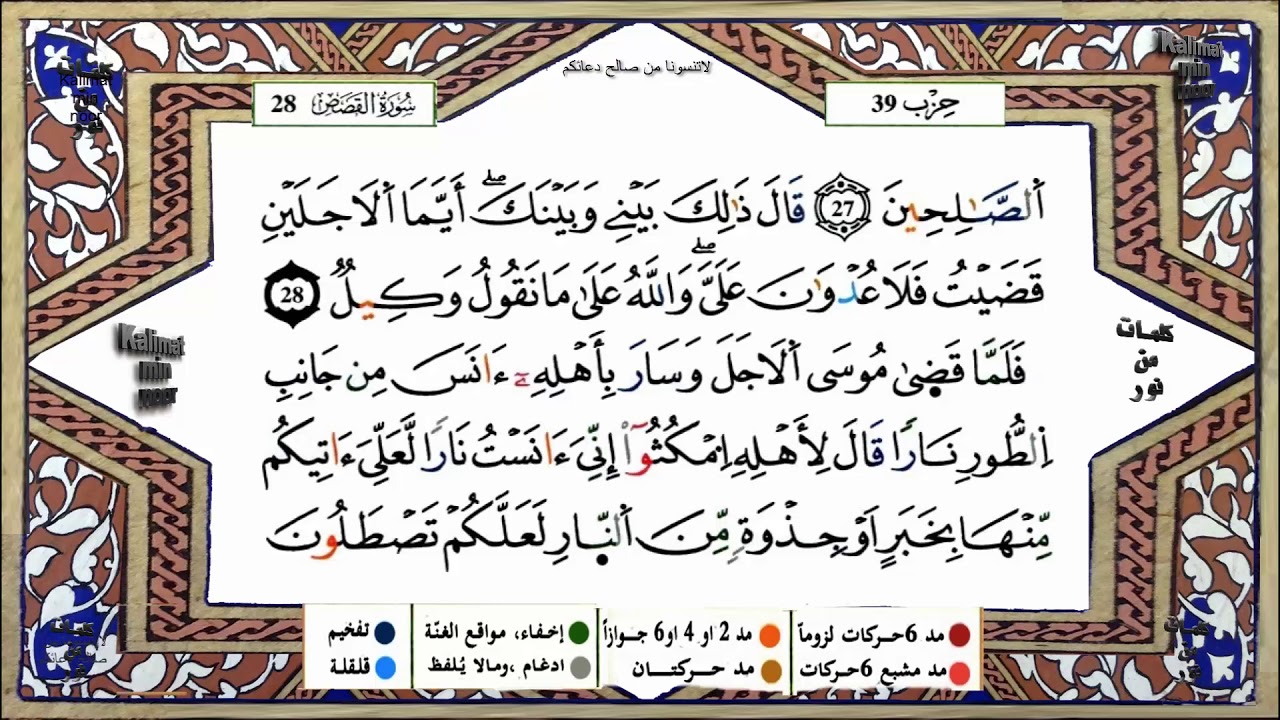 لاتنسونا من صالح دعائكم
حِزْب 39
سُورَةُ القَصَصِ 28
اَ۬لصَّٰلِحِينَ 27 قَالَ ذَٰلِكَ بَيْنِے وَبَيْنَكَۖ أَيَّمَا اَ۬لَاجَلَيْنِ
قَضَيْتُ فَلَا عُدْوَٰنَ عَلَيَّۖ وَاللَّهُ عَلَىٰ مَا نَقُولُ وَكِيلٌ 28
فَلَمَّا قَضۭيٰ مُوسَى اَ۬لَاجَلَ وَسَارَ بِأَهْلِهِۦٓ ءَانَسَ مِن جَانِبِ
اِ۬لطُّورِ نَاراً قَالَ لِأَهْلِهِ اِ۟مْكُثُوٓاْ إِنِّيَ ءَانَسْتُ نَاراً لَّعَلِّيَ ءَاتِيكُم
مِّنْهَا بِخَبَرٍ اَوْ جِذْوَةٍ مِّنَ اَ۬لنّ۪ارِ لَعَلَّكُمْ تَصْطَلُونَ
Kalimat
min
noor
كلمات
من
نور
مد 6 حركات لزوماً
مد 2 او 4 او 6 جوازاً
إخفاء، مواقع الغنّة
تفخيم
مد مشبع 6 حركات
مد حركتان
ادغام ،ومالا يُلفظ
قلقلة